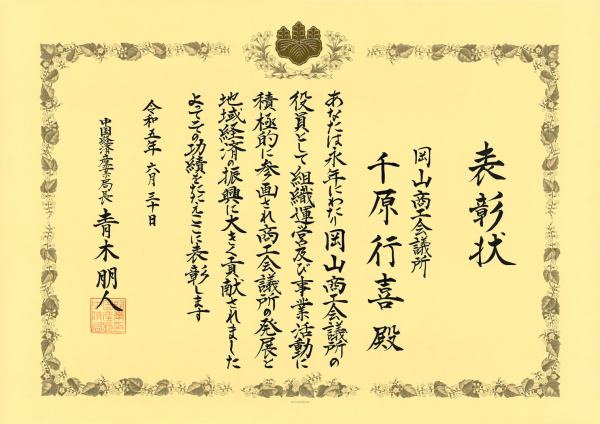 表彰状
岡山商工会議所
千原行喜殿
あなたは永年にわたり岡山商工会議所の
役員として組織運営及び事業活動に
積極的に参画され商工会議所の発展と
地域経済の振興に大きく貢献されました
よってこの功績をたたえここに表彰します
令和五年六月三十日
中国経済産業局長
青木朋人